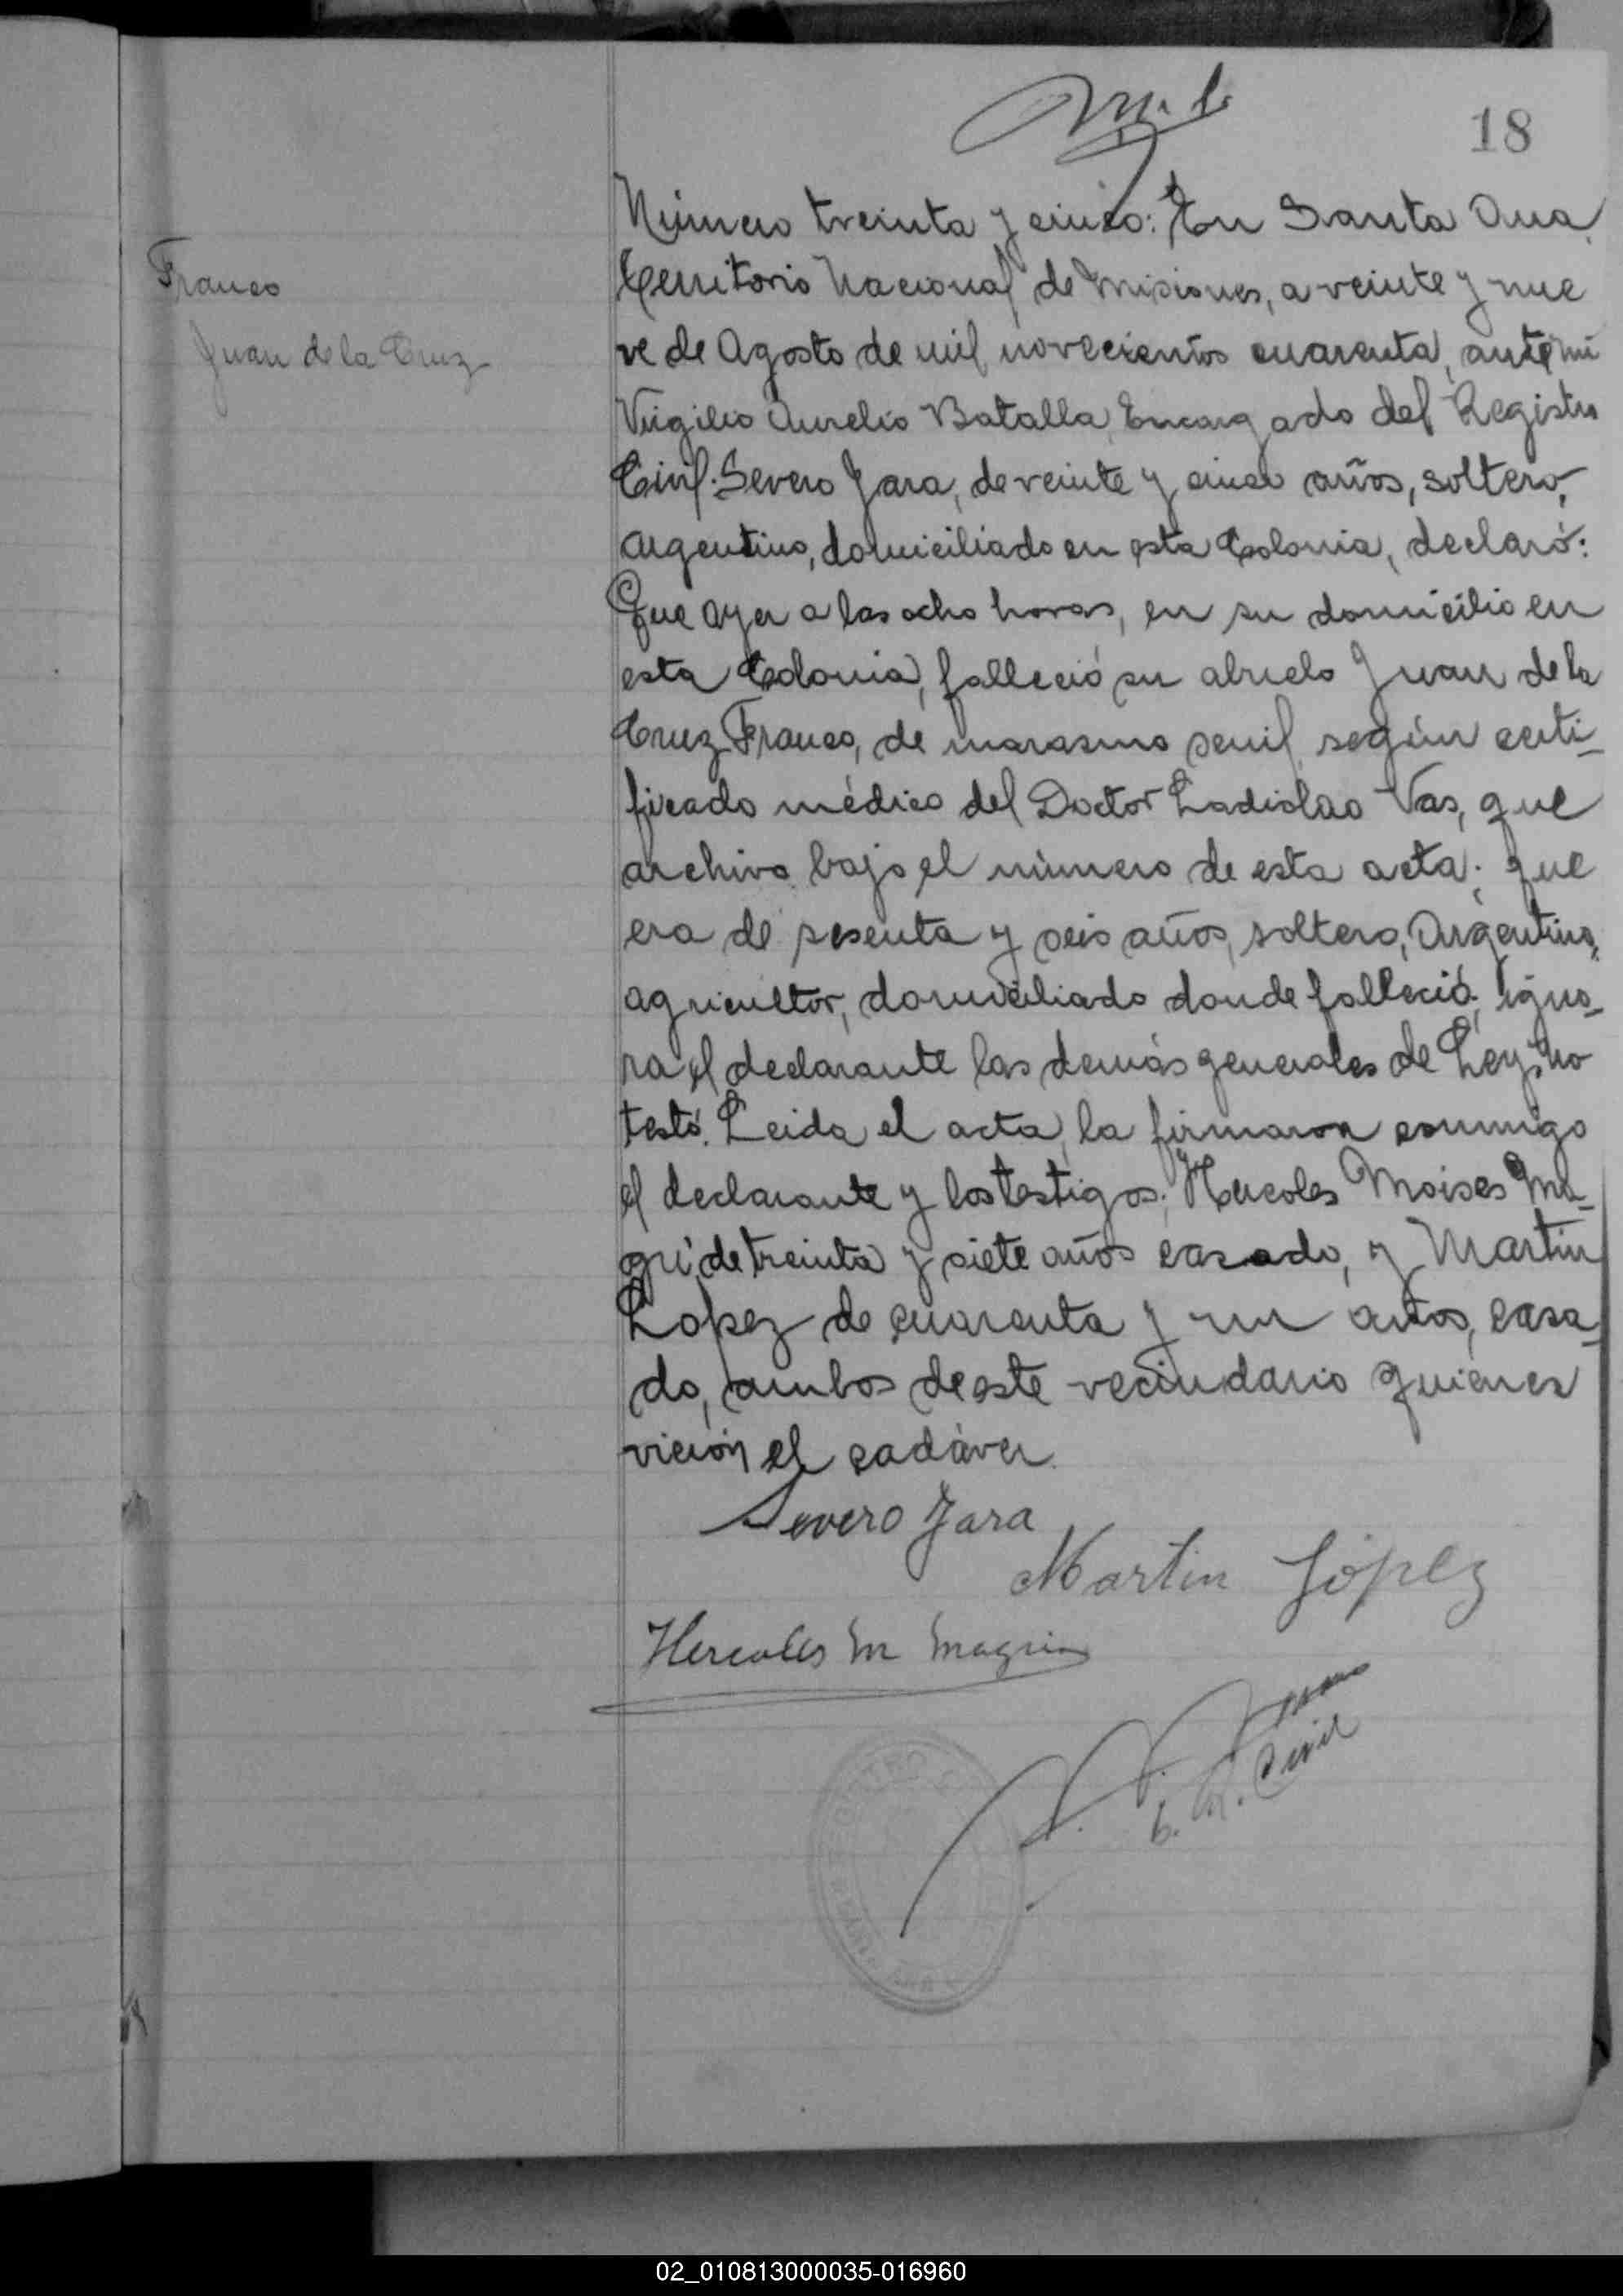 18
Franco
Juan de la Cruz
Número treinta y cinco: En Santa Ana,
Territorio Nacional de Misiones, a veinte y nue
ve de Agosto de mil novecientos cuarenta, ante mi
Virgilio Aurelio Batalla, Encargado del Registro
Civil. Severo Jara, de veinte y cinco años, soltero,
argentino, domiciliado en esta Colonia, declaró:
Que ayer a las ocho horas, en su domicilio en
esta Colonia, falleció su abuelo Juan de la
Cruz Franco, de marasmo senil, según certi-
ficado médico del Doctor Ladislao Vas, que
archivo bajo el número de esta acta; que
era de sesenta y seis años, soltero, Argentino,
agricultor, domiciliado donde falleció; igno-
ra el declarante las demás generales de Ley; no
testó. Leida el acta, la firmaron conmigo
el declarante y los testigos; Hercoles Moises Ma-
gri, de treinta y siete años casado, y Martin
Lopez de cuarenta y un años, casa-
do, ambos de este vecindario quienes
vieron el cadáver.
Severo Jara
Martin López
Hercoles M Magri
Civil
REGISTRO
02_010813000035-016960